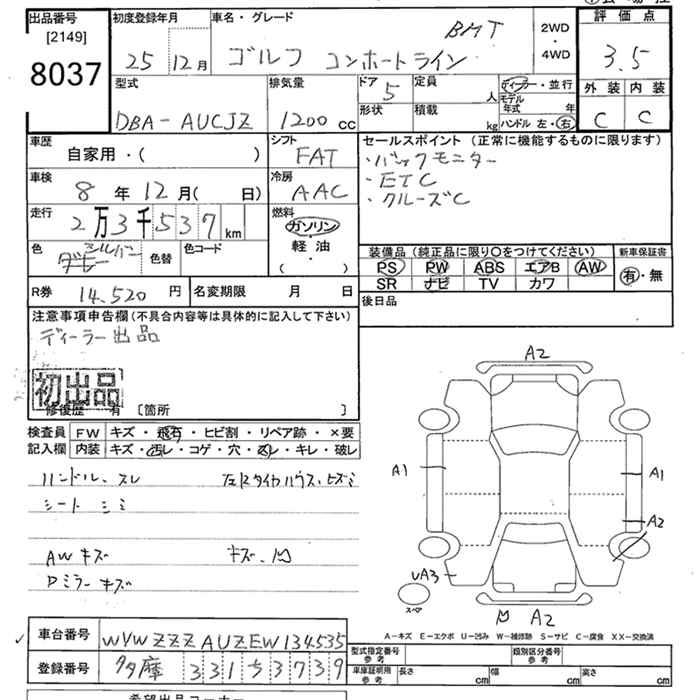 出品番号 初度登録年月 車名・グレード 評価点
[2149] BMT 2WD・4WD
8037 25 12月 ゴルフ コンホートライン 3.5
型式 排気量 ドア 5 定員 人 ディーラー・並行 外装 内装
形状 積載 kg モデル年式 年
DBA-AUCJZ 1200cc ハンドル 左・右 C C
車歴 シフト セールスポイント(正常に機能するものに限ります)
自家用・( ) FAT ・バックモニター
車検 冷房 ・ETC
8年12月( 日) AAC ・クルーズC
走行 燃料
2万3千537km ガソリン
色 シルバー 色替 色コード 軽油 装備品(純正品に限り○をつけてください) 新車保証書
( ・ ) PS PW ABS エアB AW 有・無
SR ナビ TV カワ
R券 14,520円 名変期限 月 日 後日品
注意事項申告欄(不具合内容等は具体的に記入して下さい)
ディーラー出品
初出品
修復歴 有 [箇所 ]
検査員 FW キズ・飛石・ヒビ割・リペア跡・×要
記入欄 内装 キズ・汚レ・コゲ・穴・スレ・キレ・破レ
ハンドル、スレ
シート シミ
AWキズ キズ、凹
Dミラー キズ
A2
A1 A1
A2
UA3
スペア
凹 A2
A-キズ E-エクボ U-凹み W-補修跡 S-サビ C-腐食 XX-交換済
車台番号 WVWZZZAUZEW134535
型式指定番号 参考 類別区分番号 参考
登録番号 多摩 331 ら 3739
車庫証明用 参考 長さ cm 幅 cm 高さ cm
希望出品コーナー